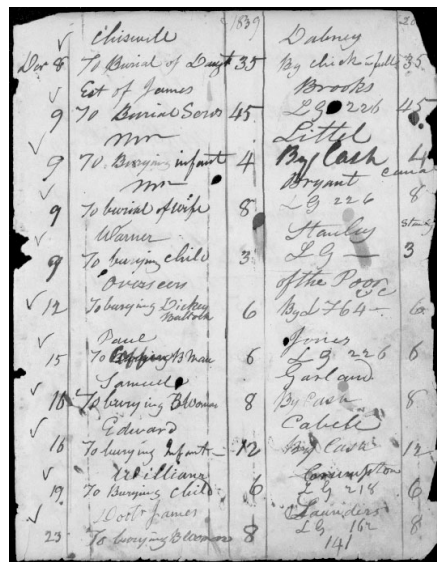 1839
Chiswell Dabney
Dec 8 To Burial of Daugt 35 By check in full 35
Est of James Brooks
9 To Burial Serv 45 LG 226 45
Mr Littel
9 To Burying infant 4 By Cash 4
Mr Bryant canal
9 To burial of wife 8 LG 226 8
Warner Stanley
9 To burying child 3 LG 3
Overseers of the Poor
12 To burying Dickey 6 By L 764 6
Paul Jones
15 To B Man 6 LG 226 6
Samuel Garland
16 To burying B Woman 8 By Cash 8
Edward Cabell
16 To burying Infant 12 By Cash 12
William
19 To Burying child 6 LG 218 6
Doctr James Saunders
23 To burying B woman 8 LG 162 8
141